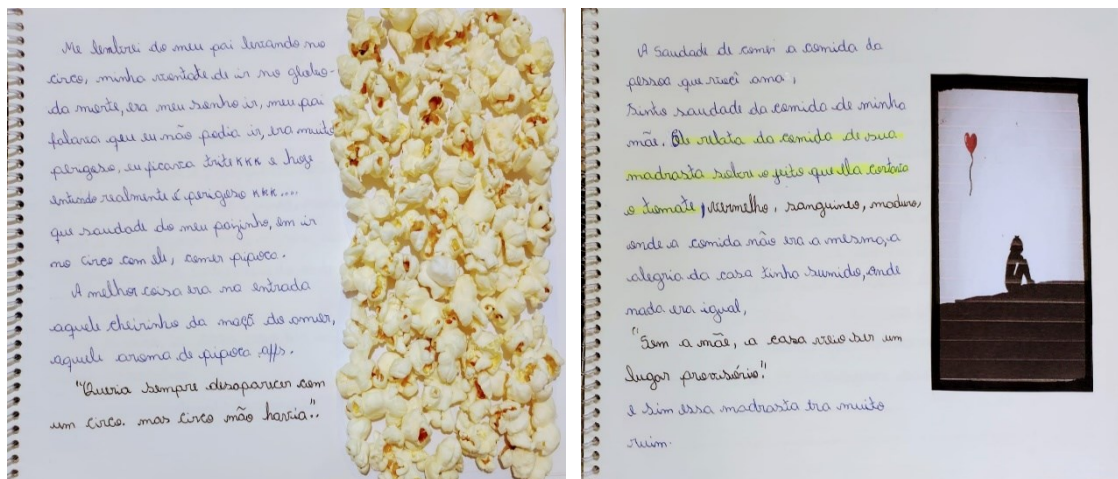 Me lembrei do meu pai levando no
circo, minha vontate de ir no globo-
da morte, era meu sonho ir, meu pai
falava que eu não podia ir, era muito
perigoso, eu ficava triteKKK e hoje
entendo realmente é perigoso KKK....
que saudade do meu paizinho, em ir
no circo com ele, comer pipoca.
A melhor coisa era na entrada
aquele cheirinho da maçã do amor,
aquele aroma de pipoca affs.
"Queria sempre desaparecer com
um circo. mas circo não havia".
A Saudade de comer a comida da
pessoa que você ama,
Sinto saudade da comida de minha
mãe. Ele relata da comida de sua
madrasta sobre o jeito que ela cortava
o tomate, vermelho, sanguíneo, maduro,
onde a comida não era a mesmo, a
alegria da casa tinha sumido, onde
nada era igual,
"Sem a mãe, a casa veio ser um
lugar provisório."
e sim essa madrasta era muito
ruim.